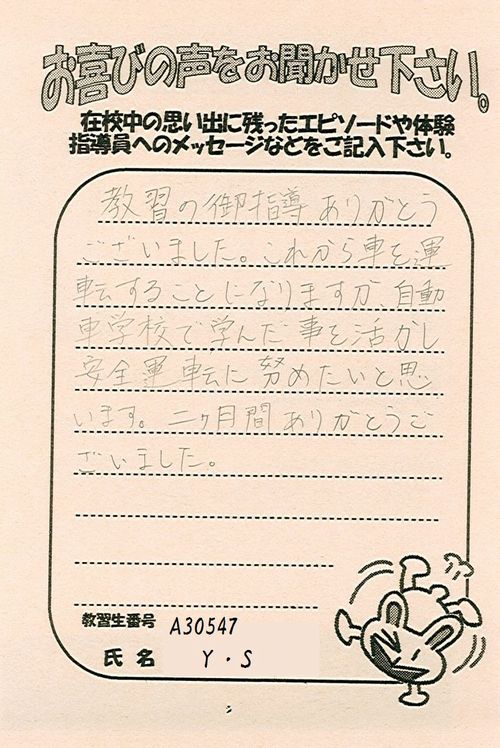 お喜びの声をお聞かせ下さい。
在校中の思い出に残ったエピソードや体験
指導員へのメッセージなどをご記入下さい。
教習の御指導ありがとう
ございました。これから車を運
転することになりますが、自動
車学校で学んだ事を活かし
安全運転に努めたいと思
います。二ヶ月間ありがとうご
ざいました。
教習生番号 A30547
氏名 Y・S